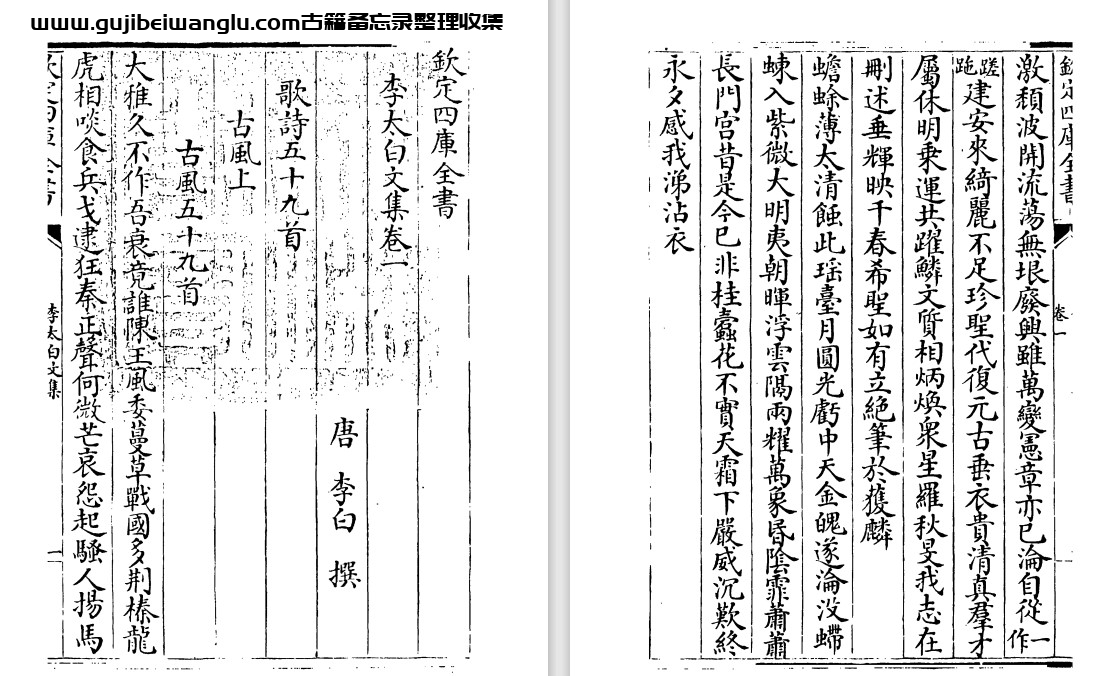 www.gujibeiwanglu.com古籍备忘录整理收集
欽定四庫全書
李太白文集卷一
唐 李白 撰
歌詩五十九首
古風上
古風五十九首
大雅久不作吾衰竟誰陳王風委蔓草戰國多荆榛龍
虎相啖食兵戈逮狂秦正聲何微芒哀怨起騷人揚馬
李太白文集 一
欽定四庫全書 卷一
激頹波開流蕩無垠廢興雖萬變憲章亦已淪自從一作
蹉跎建安來綺麗不足珍聖代復元古垂衣貴清真羣才
屬休明乗運共躍鱗文質相炳煥衆星羅秋旻我志在
刪述垂輝映千春希聖如有立絶筆於獲麟
蟾蜍薄太清蝕此瑶臺月圓光虧中天金魄遂淪没螮
蝀入紫微大明夷朝暉浮雲隔兩耀萬象昏陰霏蕭蕭
長門宫昔是今已非桂蠹花不實天霜下嚴威沉歎終
永夕感我涕沾衣